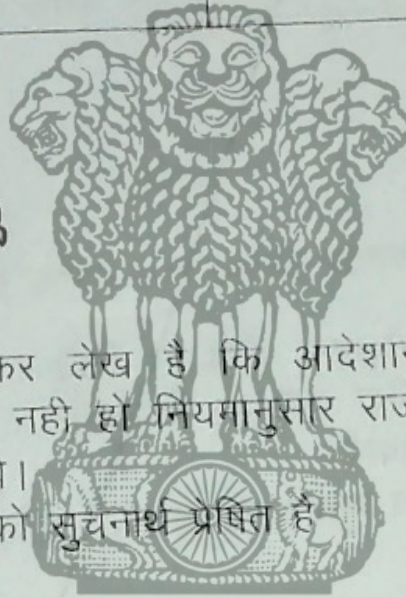 कर लेख है कि
नही हो नियमानुसार
को सुचनार्थ प्रेषित है